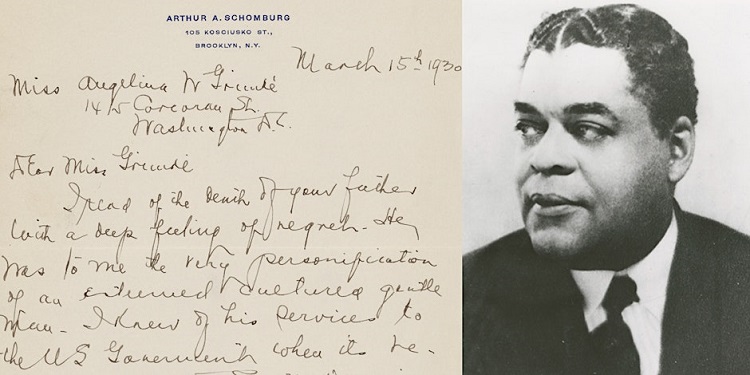 ARTHUR A. SCHOMBURG
105 KOSCIUSKO ST.,
BROOKLYN, N.Y.
March 15th 1930
Miss Angelina W Grimké
1415 Corcoran St.
Washington D.C.
Dear Miss Grimké
I read of the death of your father
with a deep feeling of regret. He
was to me the very personification
of an esteemed cultured gentle
man. I knew of his services to
the US Government when its re-